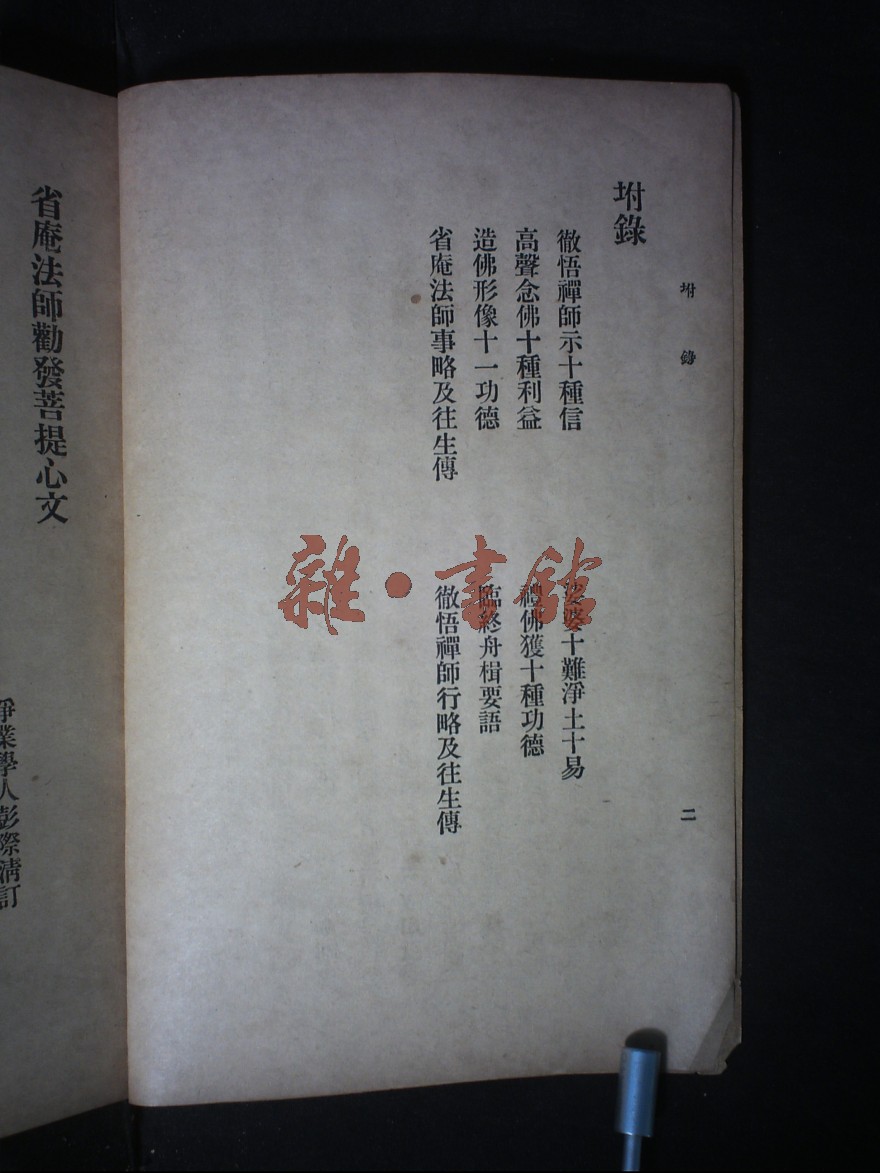 坿錄
二
坿錄
徹悟禪師示十種信
娑婆十難淨土十易
高聲念佛十種利益
禮佛獲十種功德
造佛形像十一功德
臨終舟楫要語
省庵法師事略及往生傳
徹悟禪師行略及往生傳
雜·書館
省庵法師勸發菩提心文
淨業學人彭際清訂